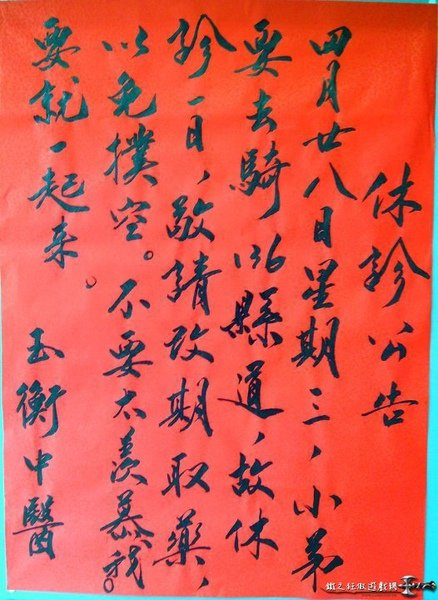 休診公告
四月廿八日星期三，小弟
要去騎136縣道，故休
診一日，敬請改期取藥，
以免撲空。不要太羨慕我。
要就一起來。
玉衡中醫